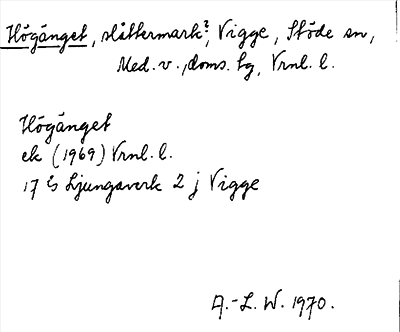 Högänget, slåttermark?, Vigge, Stöde sn,
Med. v., doms. hg, Vrnl. l.
Högänget
ek (1969) Vrnl. l.
17 Ljungaverk 2 j Vigge
A.-L. W. 1970.